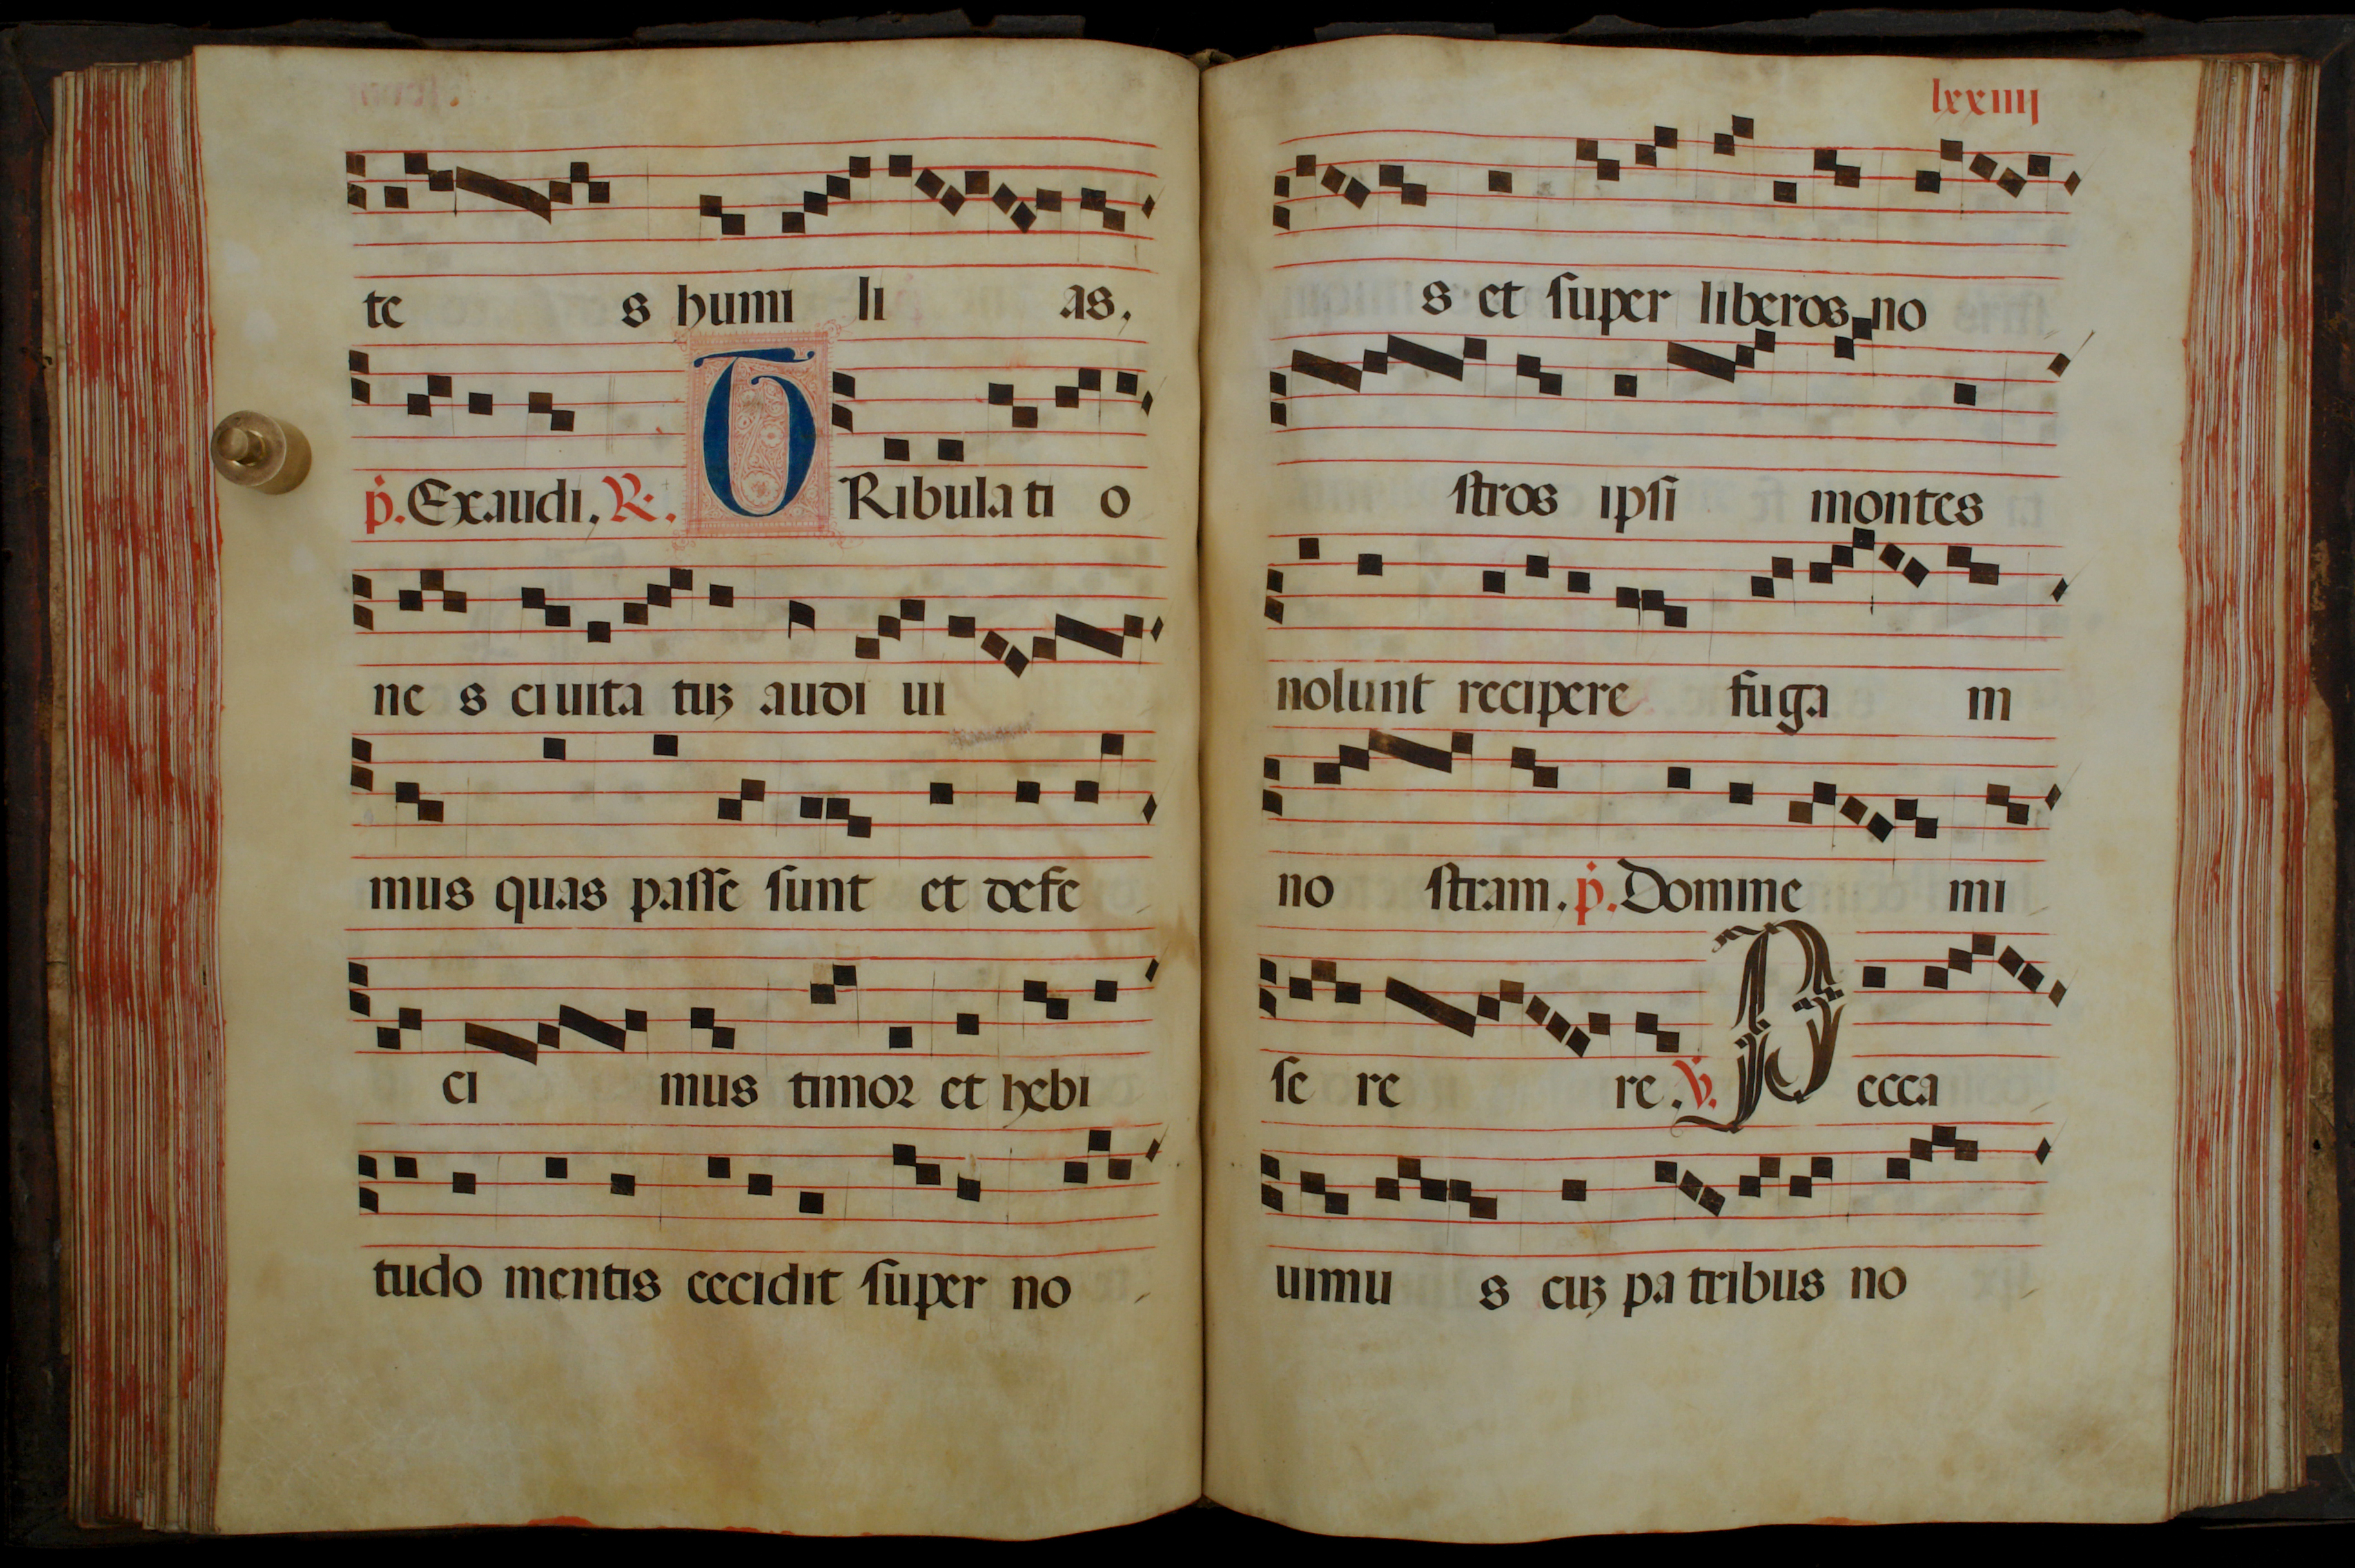 te s humi li as.
p̄. Exaudi. R. TRibulati o
ne s ciuita tuꝫ audi ui
mus quas passe sunt et defe
ci mus timoꝛ et hebi
tudo mentis cecidit super no
lxxiiij
s et super liberos no
stros ipsi montes
nolunt recipere fuga m
no stram. p̄. Domine mi
se re re. V. Pecca
uimu s cuꝫ pa tribus no